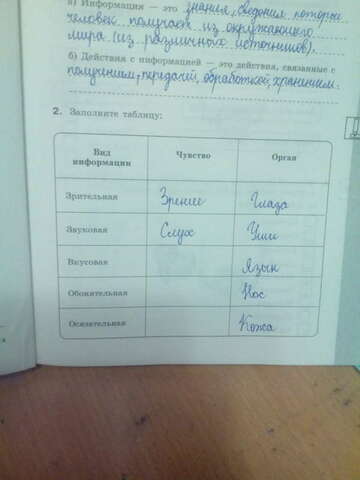 а) Информация — это знания, сведения которые
человек получает из окружающего
мира (из различных источников).
б) Действия с информацией — это действия, связанные с
получением, передачей, обработкой, хранением.
2. Заполните таблицу:
Вид информации Чувство Орган
Зрительная Зрение Глаза
Звуковая Слух Уши
Вкусовая Язык
Обонятельная Нос
Осязательная Кожа